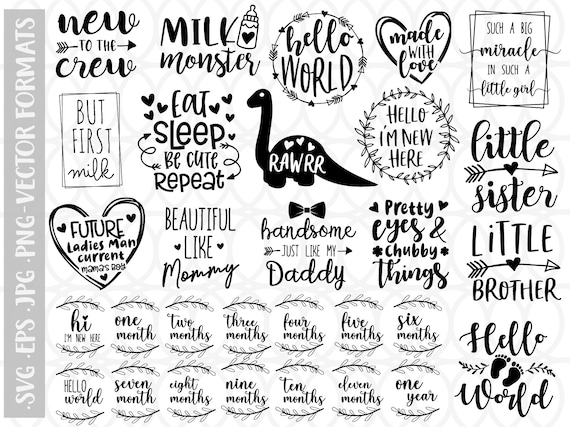 .SVG .EPS .JPG .PNG-VECTOR FORMATS
new
TO THE
crew
MILK
monster
hello
WORLD
made
WITH
love
SUCH A BIG
miracle
IN SUCH A
little girl
BUT
FIRST
milk
EAT
SLEEP
BE CUTE
REPEAT
RAWRR
HELLO
I'M NEW
HERE
little
sister
LITTLE
BROTHER
FUTURE
Ladies Man
current
MAMA'S BOY
BEAUTIFUL
LIKE
Mommy
handsome
JUST LIKE MY
Daddy
Pretty
eyes &
Chubby
Things
hi
I'M NEW HERE
one
month
two
months
three
months
four
months
five
months
six
months
HELLO
world
seven
months
eight
months
nine
months
ten
months
eleven
months
one
year
Hello
World